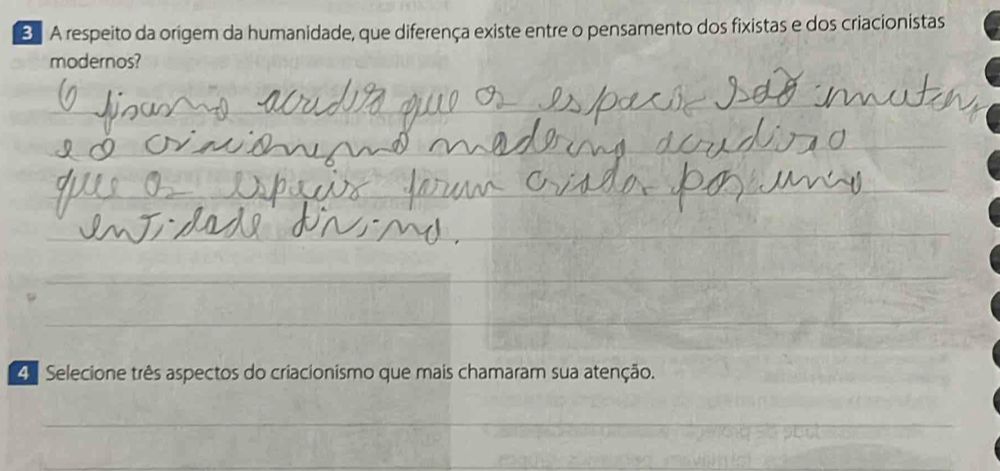 3 A respeito da origem da humanidade, que diferença existe entre o pensamento dos fixistas e dos criacionistas
modernos?
O fixismo acredita que as especies são imutan
e o criacionismo moderno acredita
que as especies foram criadas por uma
entidade divina.
4 Selecione três aspectos do criacionismo que mais chamaram sua atenção.